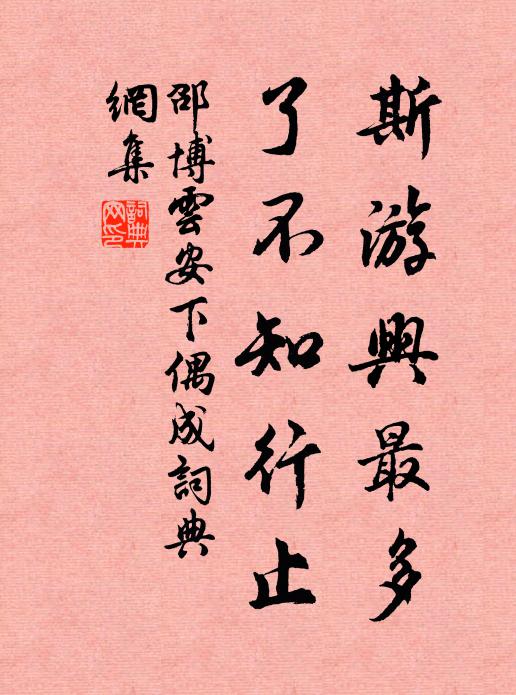 斯游興最多
了不知行止
邵博雲安下偶成詞典
網集
詞典網印